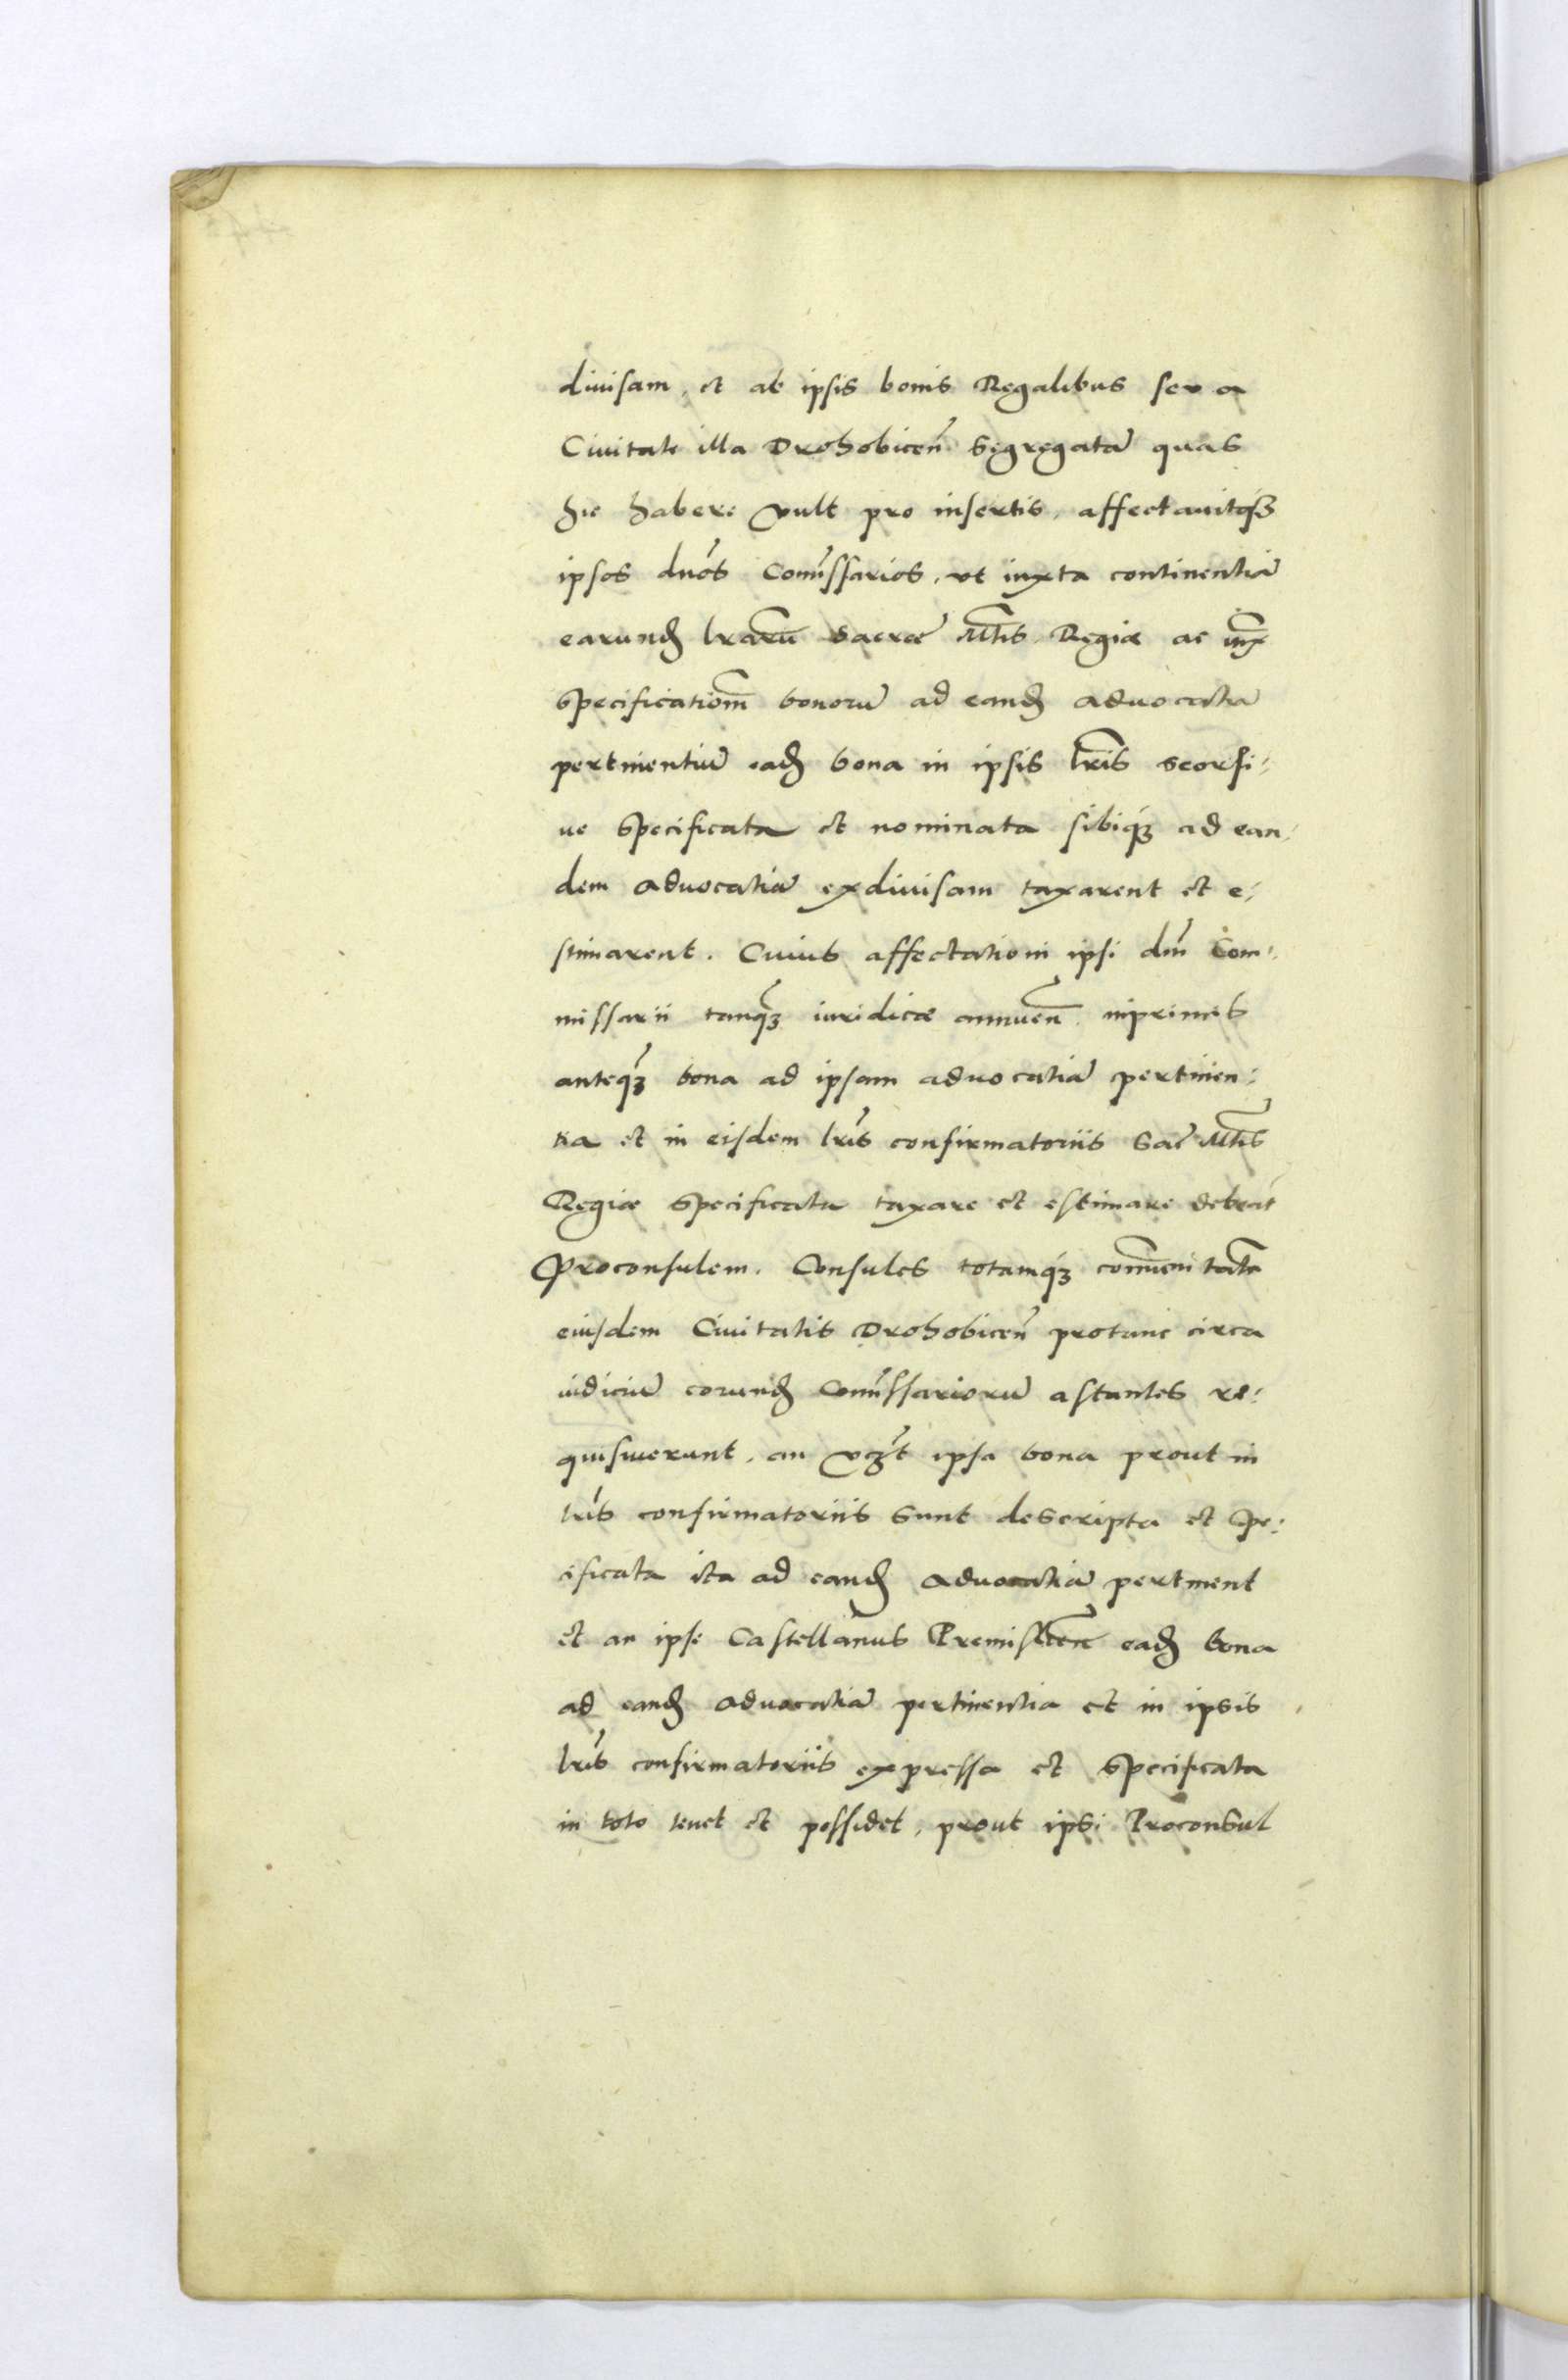 diuisam, et ab ipsis bonis Regalibus seu a
Ciuitate illa Drohobicen̄ segregatā quas
hic habere vult pro insertis, affectauitq́ꝫ
ipsos dnos Comissarios, vt iuxta continentiā
earundȝ lrarū Sacrae Mtis Regiae ac iux
specificationm̄ bonorū ad eandȝ aduocatiā
pertinentiū eadȝ bona in ipsis lris seorsi-
ue specificata et nominata sibiq́ꝫ ad ean-
dem aduocatiā exdiuisam taxarent et e-
stimarent. Cuius affectationi ipsi dni Com-
missarii tanqꝫ iuridicae annuen̄ inprimis
anteqꝫ bona ad ipsam aduocatiā pertinen-
tia et in eisdem lris confirmatoriis Sac Mtis
Regiae specificata taxare et estimare debeāt
Proconsulem. Consules totamq́ꝫ comunitatē
eiusdem Ciuitatis Drohobicen̄ protunc circa
iudiciū eorundȝ Comissariorū astantes re-
quisiuerunt, an vꝫt ipsa bona prout in
lris confirmatoriis sunt descripta et spe-
cificata ita ad eandȝ aduocatiā pertinent
et an ipse Castellanus Premislien̄ eadȝ bona
ad eandȝ aduocatiā pertinentia et in ipsis
lris confirmatoriis expressa et specificata
in toto tenet et possidet, prout ipsi Proconsul